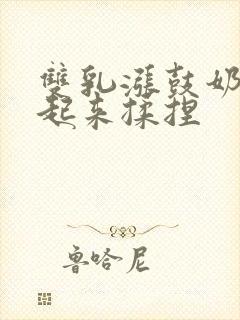 雙乳漲鼓奶
起來揉捏
魯哈尼